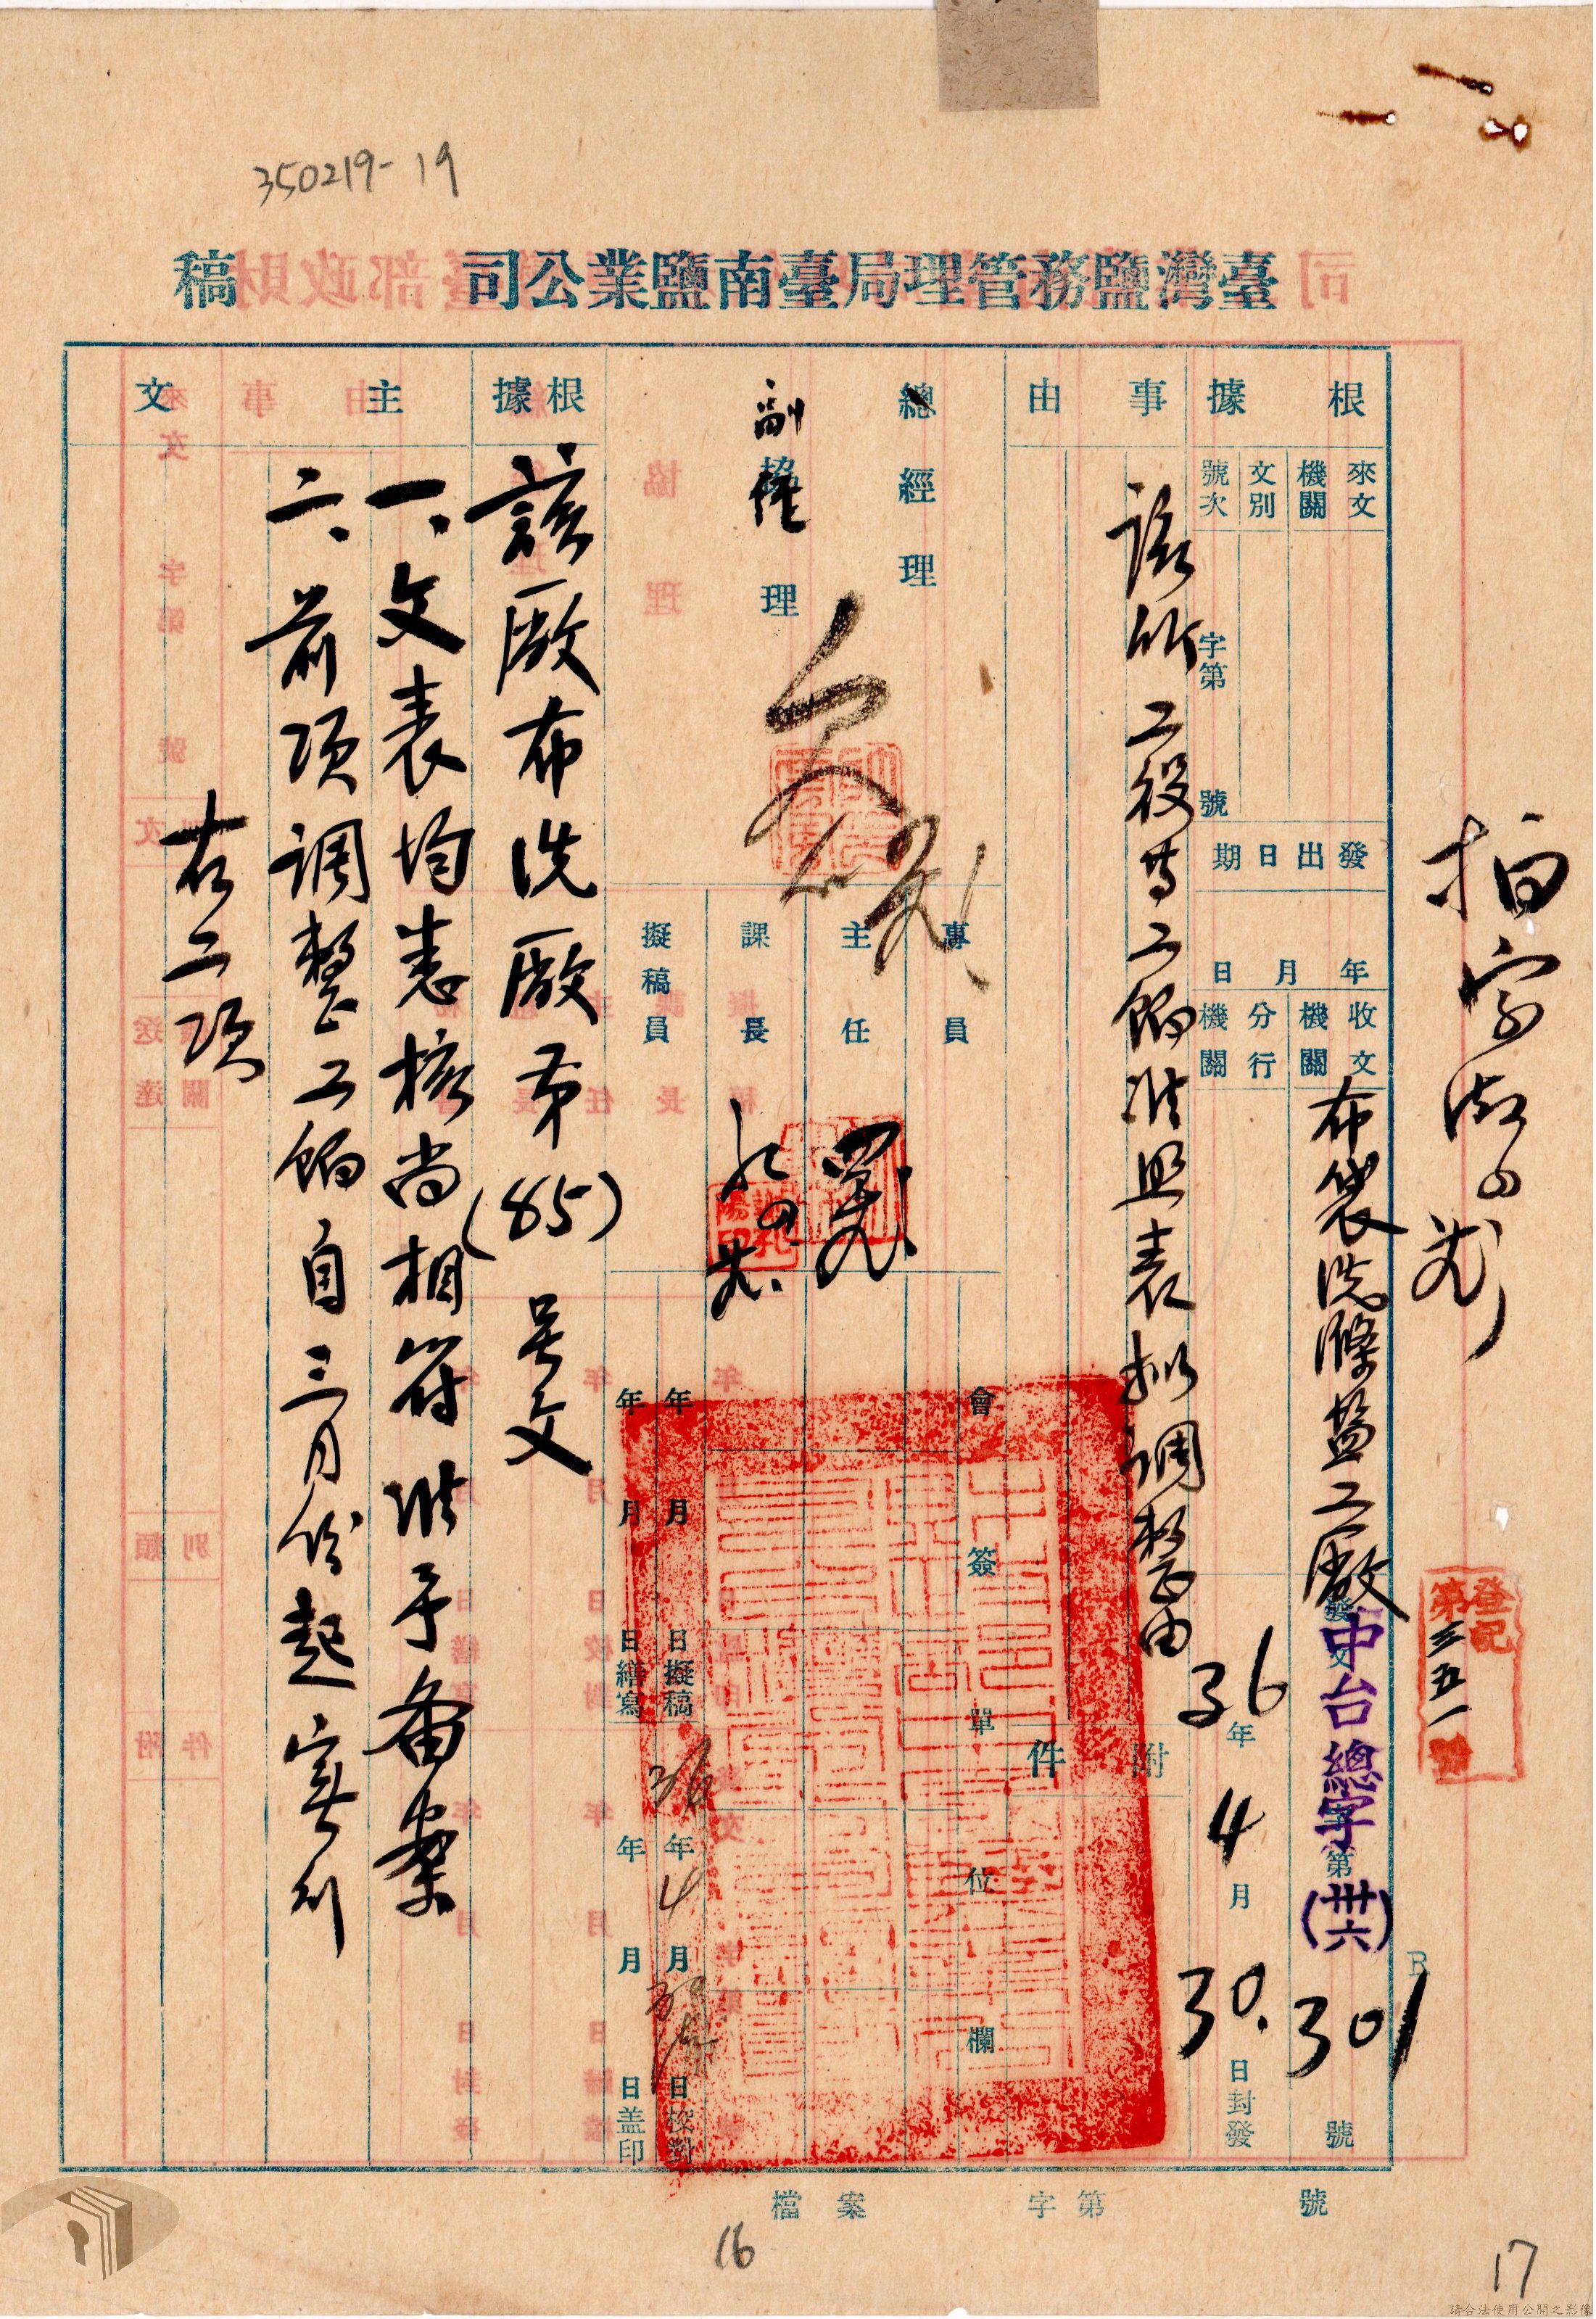 350219-19
臺灣鹽務管理局臺南鹽業公司 稿
根據
來文機關
文別
號次
字第 號
事由
該所工役等工餉准照表擬調整由
發出日期
年月日
收文機關
布袋洗滌鹽工廠
分行機關
附件
中台總字第(卅六)301號
36年4月30日封發
登記第三五一號
總經理
副經理
專員
主任
課長
擬稿員
會簽單位欄
年月日擬稿
年月日繕寫
36年4月30日校對
年月日蓋印
根據
該廠布洗廠第(85)号文
主文
一、文表均悉核尚相符准予备案
二、前項调整工餉自三月份起实行
右二項
檔案 字第 號
16
17
請合法使用公開之影像